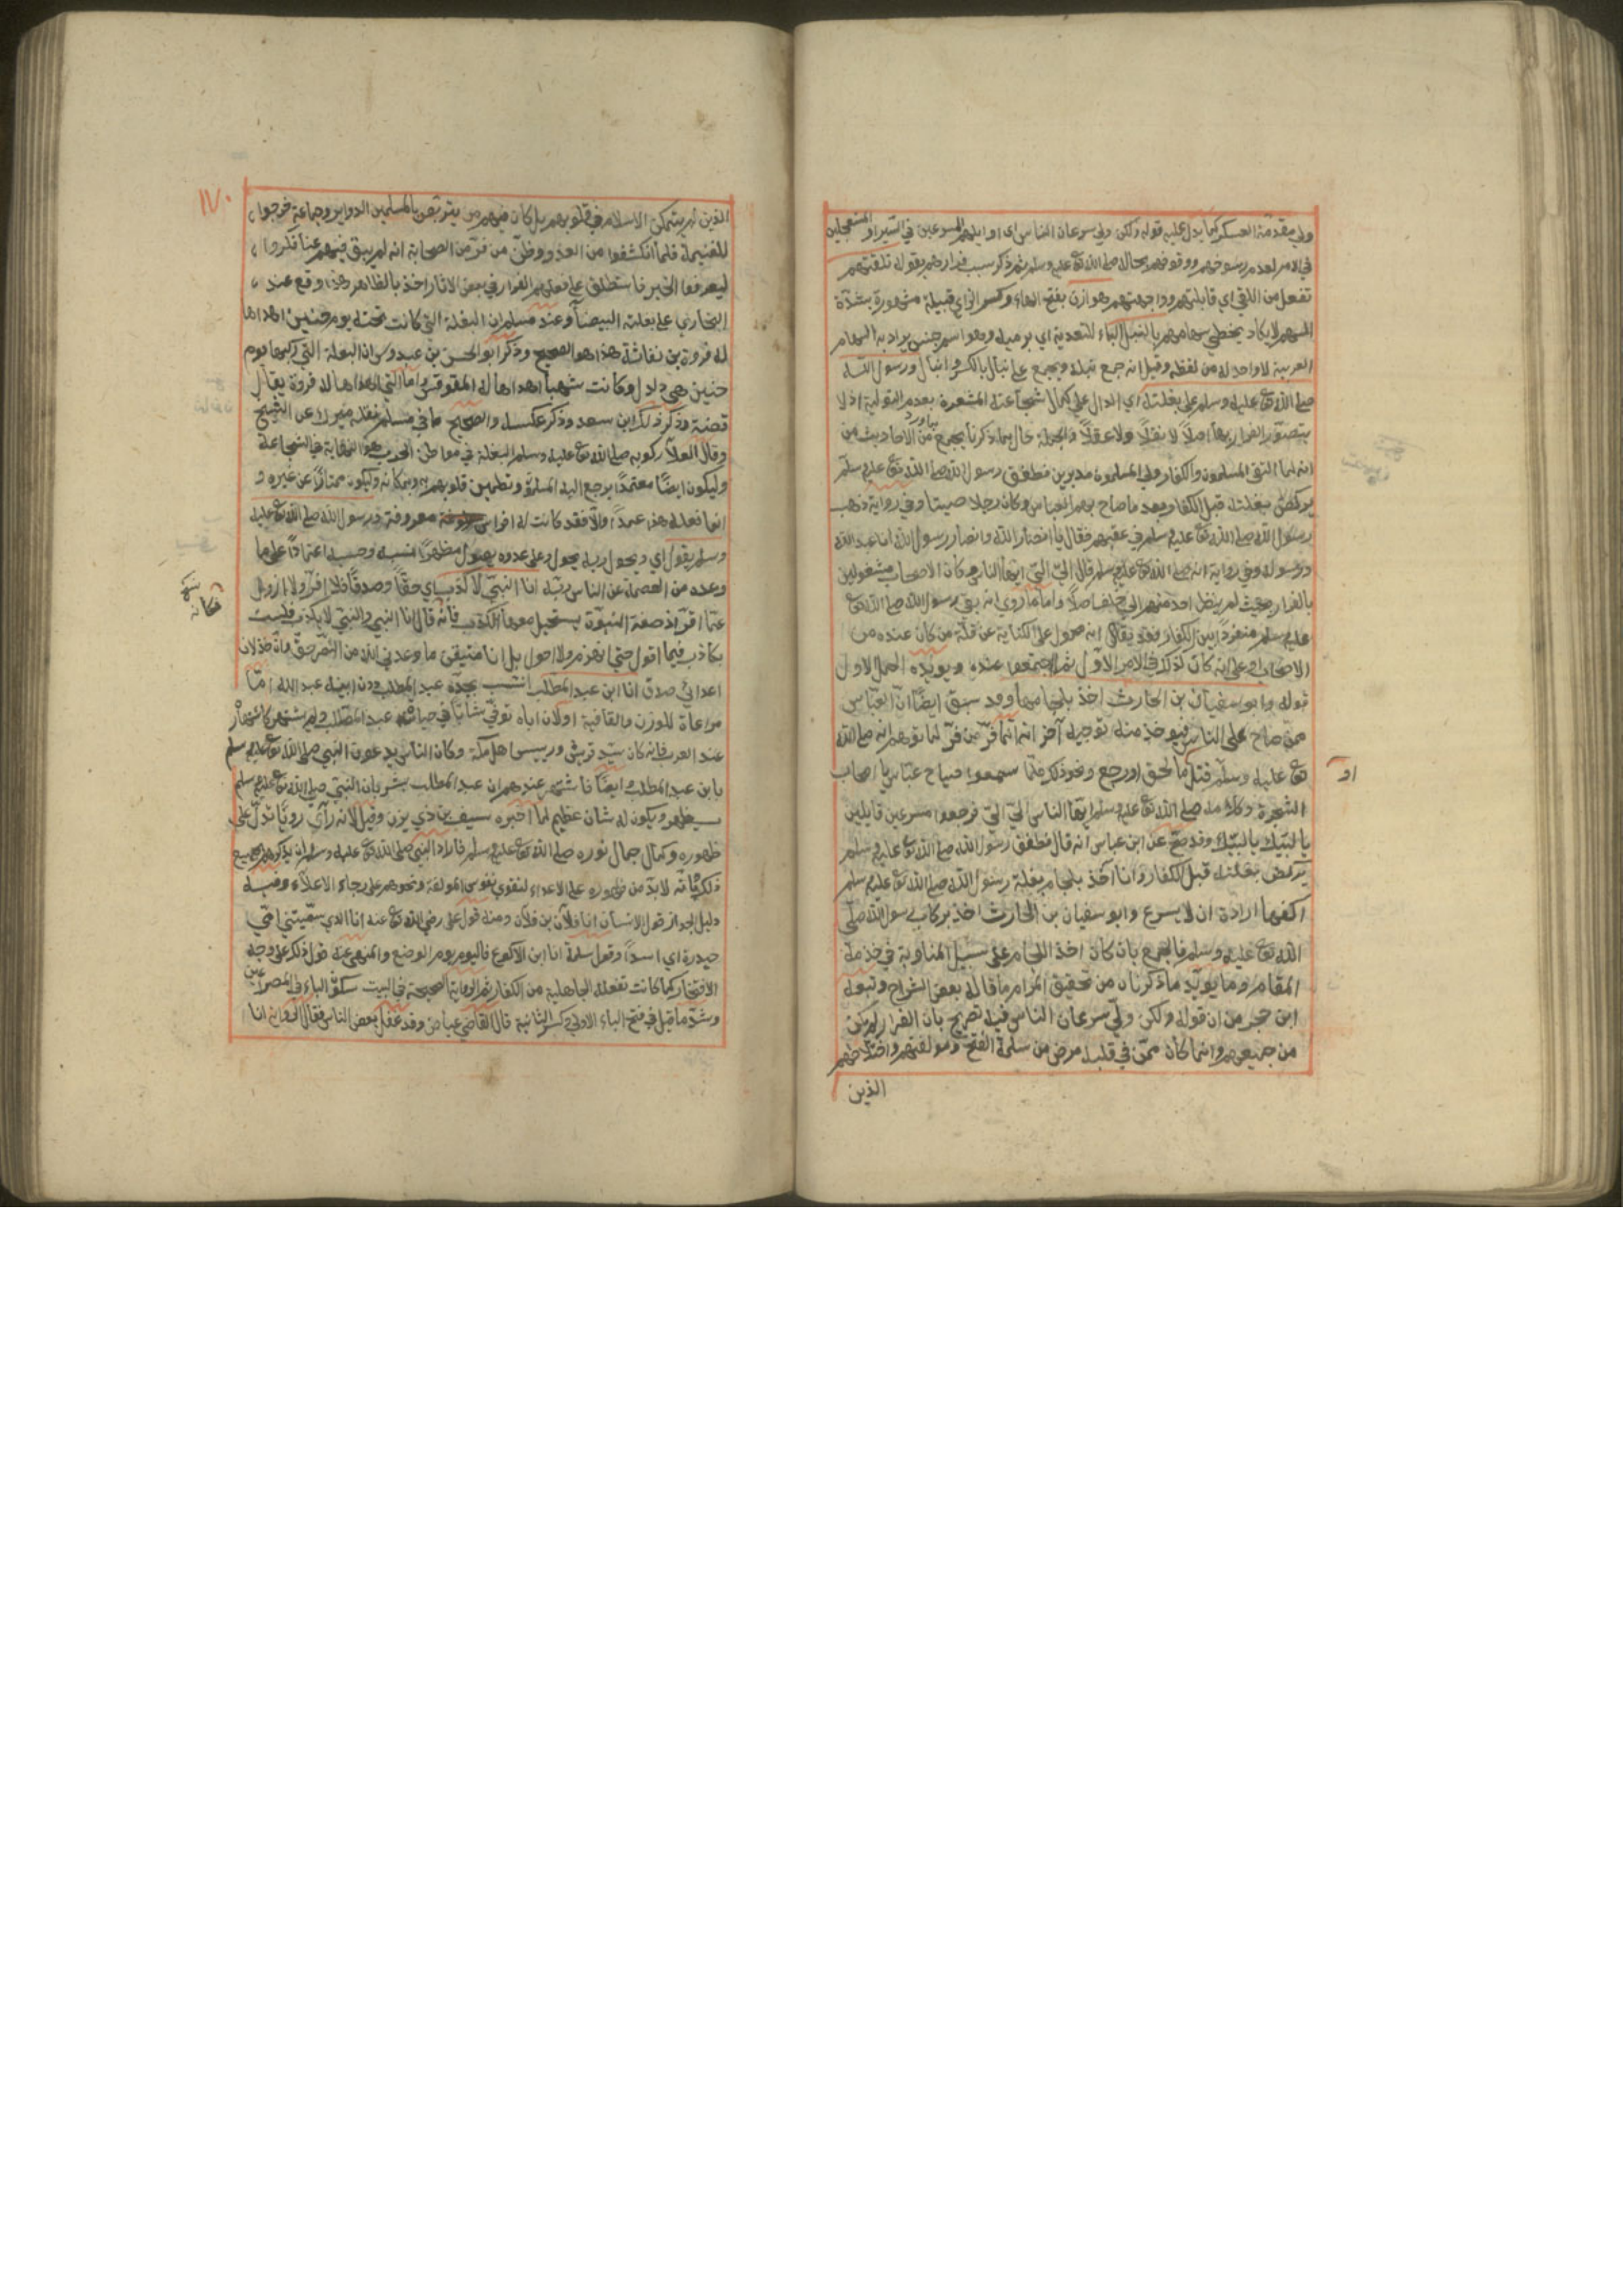 ولي مقدمة العسكر كما يدل عليه قوله ولكن ولي سرعان الناس اي اوايلهم المسرعين في السير او المستعجلين
في الامر لعدم رسوخهم ووقوفهم بحال صلى الله تع عليه وسلم ثم ذكر سبب فرارهم بقوله تلقتهم
تفعل من اللقي اي قابلتهم وواجهتهم هوازن بفتح الهاء وكسر الزاي قبيلة مشهورة بشدة
السهم لا يكاد يخطي سهامهم بالنبل الباء للتعدية اي برميه وهو اسم جنس يراد به السهام
العربية لا واحد له من لفظه وقيل انه جمع نبله ويجمع على نبال بالكسر وانبال ورسول الله
صلى الله تع عليه وسلم على بغلته اي الدال على كمال شجاعته المشعرة بعدم التولية اذ لا
يتصور الفرار بها اصلا لا نقلا ولا عقلا والجملة حال بما ذكرنا يجمع من الاحاديث من
انه لما التقى المسلمون والكفار ولى المسلمون مدبرين فطفق رسول الله صلى الله تع عليه وسلم
يركض بغلته قبل الكفار وبعد ما صاح بهم العباس وكان رجلا صيتا وفي رواية ذهب
رسول الله صلى الله تع عليه وسلم في عقبهم فقال يا انصار الله وانصار رسول الله انا عبد الله
ورسوله وفي رواية انه صلى الله تع عليه وسلم قال الي الي ايها الناس وكان الاصحاب مشغولين
بالفرار بحيث لم ينظر احد منهم الى خلف اصلا واما ما روي انه بقي رسول الله صلى الله تع
عليه وسلم منفردا بين الكفار فقد يقال انه محمول على الكناية عن قلة من كان عنده من
الاصحاب او على انه كان كذلك في الامر الاول ثم اجتمعوا عنده ويويده الحمل الاول
قوله وابو سفيان بن الحارث اخذ بلجامها وقد سبق ايضا ان العباس
ممن صاح على الناس فيوخذ منه توجيه آخر انه انما فر من فر لما توهم انه صلى الله
تع عليه وسلم قتل ما لحق او رجع ونحو ذلك مما سمعوا صياح عباس يا اصحاب
او
الشجرة وكلامه صلى الله تع عليه وسلم ايها الناس الي الي فرجعوا مسرعين قايلين
يا لبيك يا لبيك وقد صح عن ابن عباس انه قال فطفق رسول الله صلى الله تع عليه وسلم
يركض بغلته قبل الكفار وانا آخذ بلجام بغلة رسول الله صلى الله تع عليه وسلم
اكفها ارادة ان لا يسرع وابو سفيان بن الحارث اخذ بركاب رسول الله صلى
الله تع عليه وسلم فالجمع بان كان اخذ اللجام على سبيل المناوبة في خدمة
المقام وما يويد ما ذكرنا من تحقيق المرام ما قاله بعض الشراح وتبعه
ابن حجر من ان قوله ولكن ولى سرعان الناس فيه تصريح بان الفرار لم يكن
من جميعهم وانما كان ممن في قلبه مرض من سلمة الفتح ومولفتهم واخلاطهم
الذين
١٧٠
الذين لم يتمكن الاسلام في قلوبهم بل كان فيهم من يتربص بالمسلمين الدواير وجماعة خرجوا
للغنيمة فلما انكشفوا من العدو وظن من فر من الصحابة انه لم يبق فيهم عنا فكروا
ليعرفوا الخبر فاستطلق على فعلهم الفرار في بعض الاثار اخذ بالظاهر هذا وقع عند
البخاري على بغلته البيضاء وعند مسلم ان البغلة التي كانت تحته يوم حنين اهداها
له فروة بن نفاثة هذا هو الصحيح وذكر ابو الحسن بن عبدوس ان البغلة التي ركبها يوم
حنين هي دلدل وكانت شهبا اهداها له المقوقس واما التي اهداها له فروة يقال
فضة وذكر ذلك ابن سعد وذكر عكسه والصحيح ما في مسلم نقله ميرك عن الشيخ
وقال العلا ركوبه صلى الله تع عليه وسلم البغلة في مواطن الحرب هو النهاية في الشجاعة
وليكون ايضا معتمدا يرجع اليه المسلمون وتطمين قلوبهم به وبمكانه وليكون ممتازا عن غيره و
انما فعله هذا عمدا والا فقد كانت له افراس معروفة ورسول الله صلى الله تع عليه
وسلم يقول اي ويحول ربه يجول وعلى عدوه يصول مظهرا نسبه وحسبه اعتمادا على ما
وعده من العصمة عن الناس ربه انا النبي لا كذب اي حقا وصدقا فلا افر ولا ازول
فكانه
عما اقر اذ صفة النبوة يستحيل معها الكذب فانه قال انا النبي والنبي لا يكذب فلست
بكاذب فيما اقول حتى انهزم ولا احول بل انا متيقن ما وعدني الله من النصر حق وان خذلان
اعدائي صدق انا ابن عبد المطلب انتسب بجده عبد المطلب دون ابيه عبد الله اما
مراعاة للوزن والقافية او لان اباه توفي شابا في حياة عبد المطلب ولم يشتهر كاشتهار
عند العرب فانه كان سيد قريش ورييس اهل مكة وكان الناس يدعون النبي صلى الله تع عليه وسلم
بابن عبد المطلب وايضا فاشتهر عندهم ان عبد المطلب بشر بان النبي صلى الله تع عليه وسلم
سيظهر ويكون له شان عظيم لما اخبره سيف بن ذي يزن وقيل لانه رآى رويا تدل على
ظهوره وكمال جمال نوره صلى الله تع عليه وسلم فاراد النبي صلى الله تع عليه وسلم ان يذكرهم بجميع
ذلك وبانه لابد من ظهوره على الاعداء لتقوى نفوس المولفة ونحوهم على رجاء الاعلاء وفيه
دليل لجواز قول الانسان انا فلان بن فلان ومنه قول علي رضي الله تع عنه انا الذي سمتني امي
حيدرة اي اسدا وقول سلمة انا ابن الاكوع فاليوم يوم الرضع والمنهي عنه قول ذلك على وجه
الافتخار كما كانت تفعله الجاهلية من الكفار ثم الرواية الصحيحة في البيت سكون الباء في المصراعين
وشذ ما قيل في فتح الباء الاولى وكسر الثانية قال القاضي عياض وقد غفل بعض الناس فقال الرواية انا